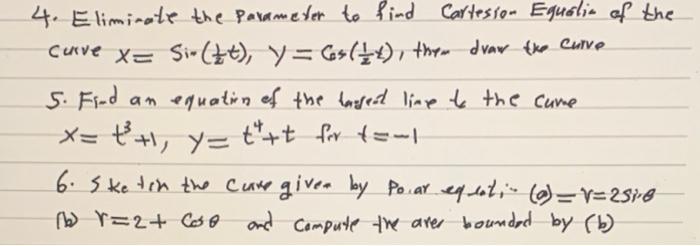 4. Eliminate the Parameter to find Cartesion Equatin of the
curve x = Sin(½t), y = Cos(½t), then draw the curve
5. Find an equation of the tangent line to the curve
x = t³+1, y = t⁴+t for t=-1
6. Sketch the curve given by Polar equation (a) = r=2Sinθ
(b) r=2+ Cosθ and Compute the area bounded by (b)